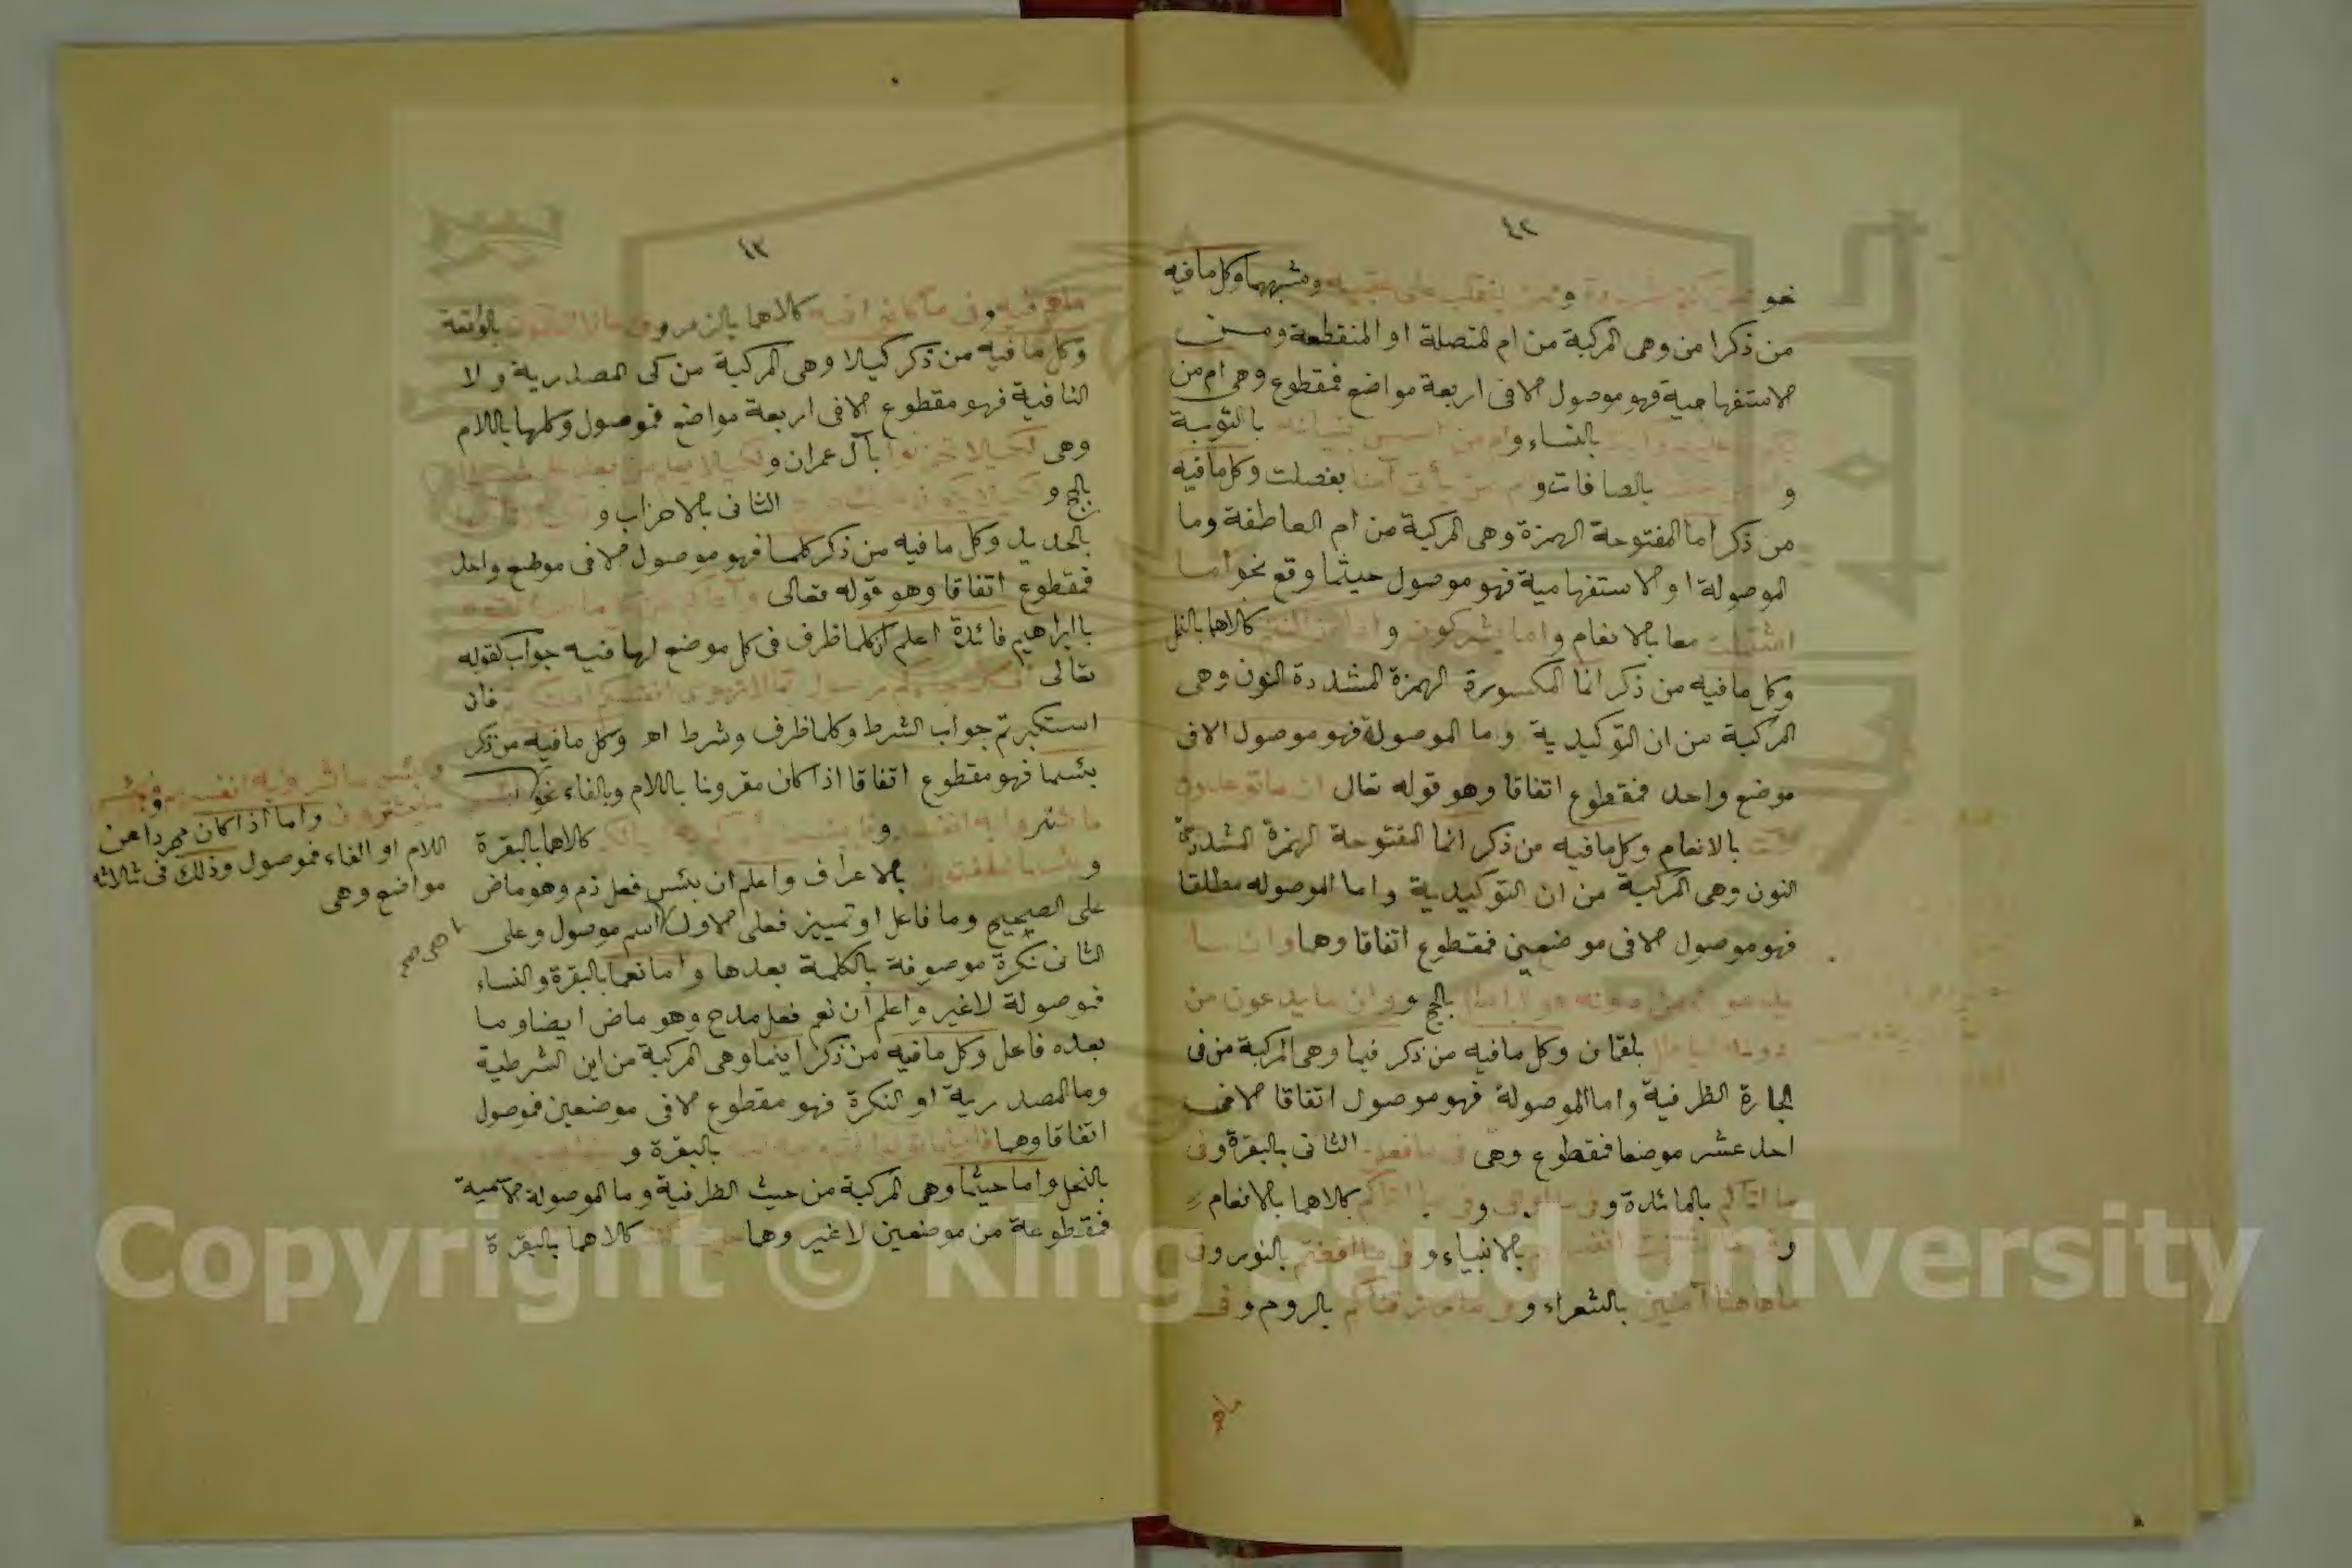 ٤٢
نحو و وشبههما وكل ما فيه
من ذكر امن وهى المركبة من ام المتصلة او المنقطعة ومن
الاستفهامية فهو موصول الا فى اربعة مواضع فمقطوع وهى ام من
بالنساء وام من اسس بنيانه بالتوبة
و بالصافات و ام من يأتى آمنا بفصلت وكل ما فيه
من ذكر اما المفتوحة الهمزة وهى المركبة من ام العاطفة وما
الموصولة او الاستفهامية فهو موصول حيثما وقع نحو اما
اشتملت معا بالانعام واما يشركون و كلاهما بالنمل
وكل ما فيه من ذكر انما المكسورة الهمزة المشددة النون وهى
المركبة من ان التوكيدية وما الموصولة فهو موصول الا فى
موضع واحد فمقطوع اتفاقا وهو قوله تعال ان ما توعدون
بالانعام وكل ما فيه من ذكر انما المفتوحة الهمزة المشددة
النون وهى المركبة من ان التوكيدية واما الموصوله مطلقا
فهو موصول الا فى موضعين فمقطوع اتفاقا وهما وان ما
يدعون من دونه هو الباطل بالحج و وان ما يدعون من
دونه الباطل بلقمان وكل ما فيه من ذكر فيما وهى المركبة من فى
الجارة الظرفية واما الموصولة فهو موصول اتفاقا الا فى
احد عشر موضعا فمقطوع وهى فى ما فعلن الثانى بالبقرة وفى
ما اتاكم بالمائدة وفى ما اوحى وفى ما اتاكم كلاهما بالانعام
و اشتهت انفسهم بالانبياء و فى ما افضتم بالنور وفى
ما هاهنا آمنين بالشعراء و فى ما رزقناكم بالروم وفى
ما هم
٤٣
ما هم فيه وفى ما كانوا فيه كلاهما بالزمر و فى ما لا تعلمون بالواقعة
وكل ما فيه من ذكر كيلا وهى المركبة من كى المصدرية ولا
النافية فهو مقطوع الا فى اربعة مواضع فموصول وكلها باللام
وهى لكيلا تحزنوا بآل عمران و لكيلا يعلم من بعد علم شيئا
بالحج و لكيلا يكون الثانى بالاحزاب و
بالحديد وكل ما فيه من ذكر كلما فهو موصول الا فى موضع واحد
فمقطوع اتفاقا وهو قوله تعالى
باابراهيم فائدة اعلم ان كلما ظرف فى كل موضع لها فيه جواب كقوله
تعالى رسول بما لا تهوى انفسكم فان
استكبرتم جواب الشرط وكلما ظرف وشرط اه وكل ما فيه من ذكر
بئسما فهو مقطوع اتفاقا اذا كان مقرونا باللام وبالفاء نحو
ما شروا به انفسهم و كلاهما بالبقرة
و بئسما خلفتمونى بالاعراف واعلم ان بئس فعل ذم وهو ماض
على الصحيح وما فاعل او تمييز فعلى الاول اسم موصول وعلى
الثانى نكرة موصوفة بالكلمة بعدها واما نعما بالبقرة والنساء
فموصولة لاغير واعلم ان نعم فعل مدح وهو ماض ايضا وما
بعده فاعل وكل ما فيه من ذكر اينما وهى المركبة من اين الشرطية
وما المصدرية او النكرة فهو مقطوع الا فى موضعين فموصول
اتفاقا وهما فاينما تولوا بالبقرة و
بالنحل واما حيثما وهى المركبة من حيث الظرفية وما الموصولة الاسمية
فمقطوعة من موضعين لاغير وهما كلاهما بالبقرة
ولبئس ما شروا به انفسهم و فبئس
ما يشترون واما اذا كان مجردا عن
اللام او الفاء فموصول وذلك فى ثلاثة
مواضع وهى
Copyright © King Saud University